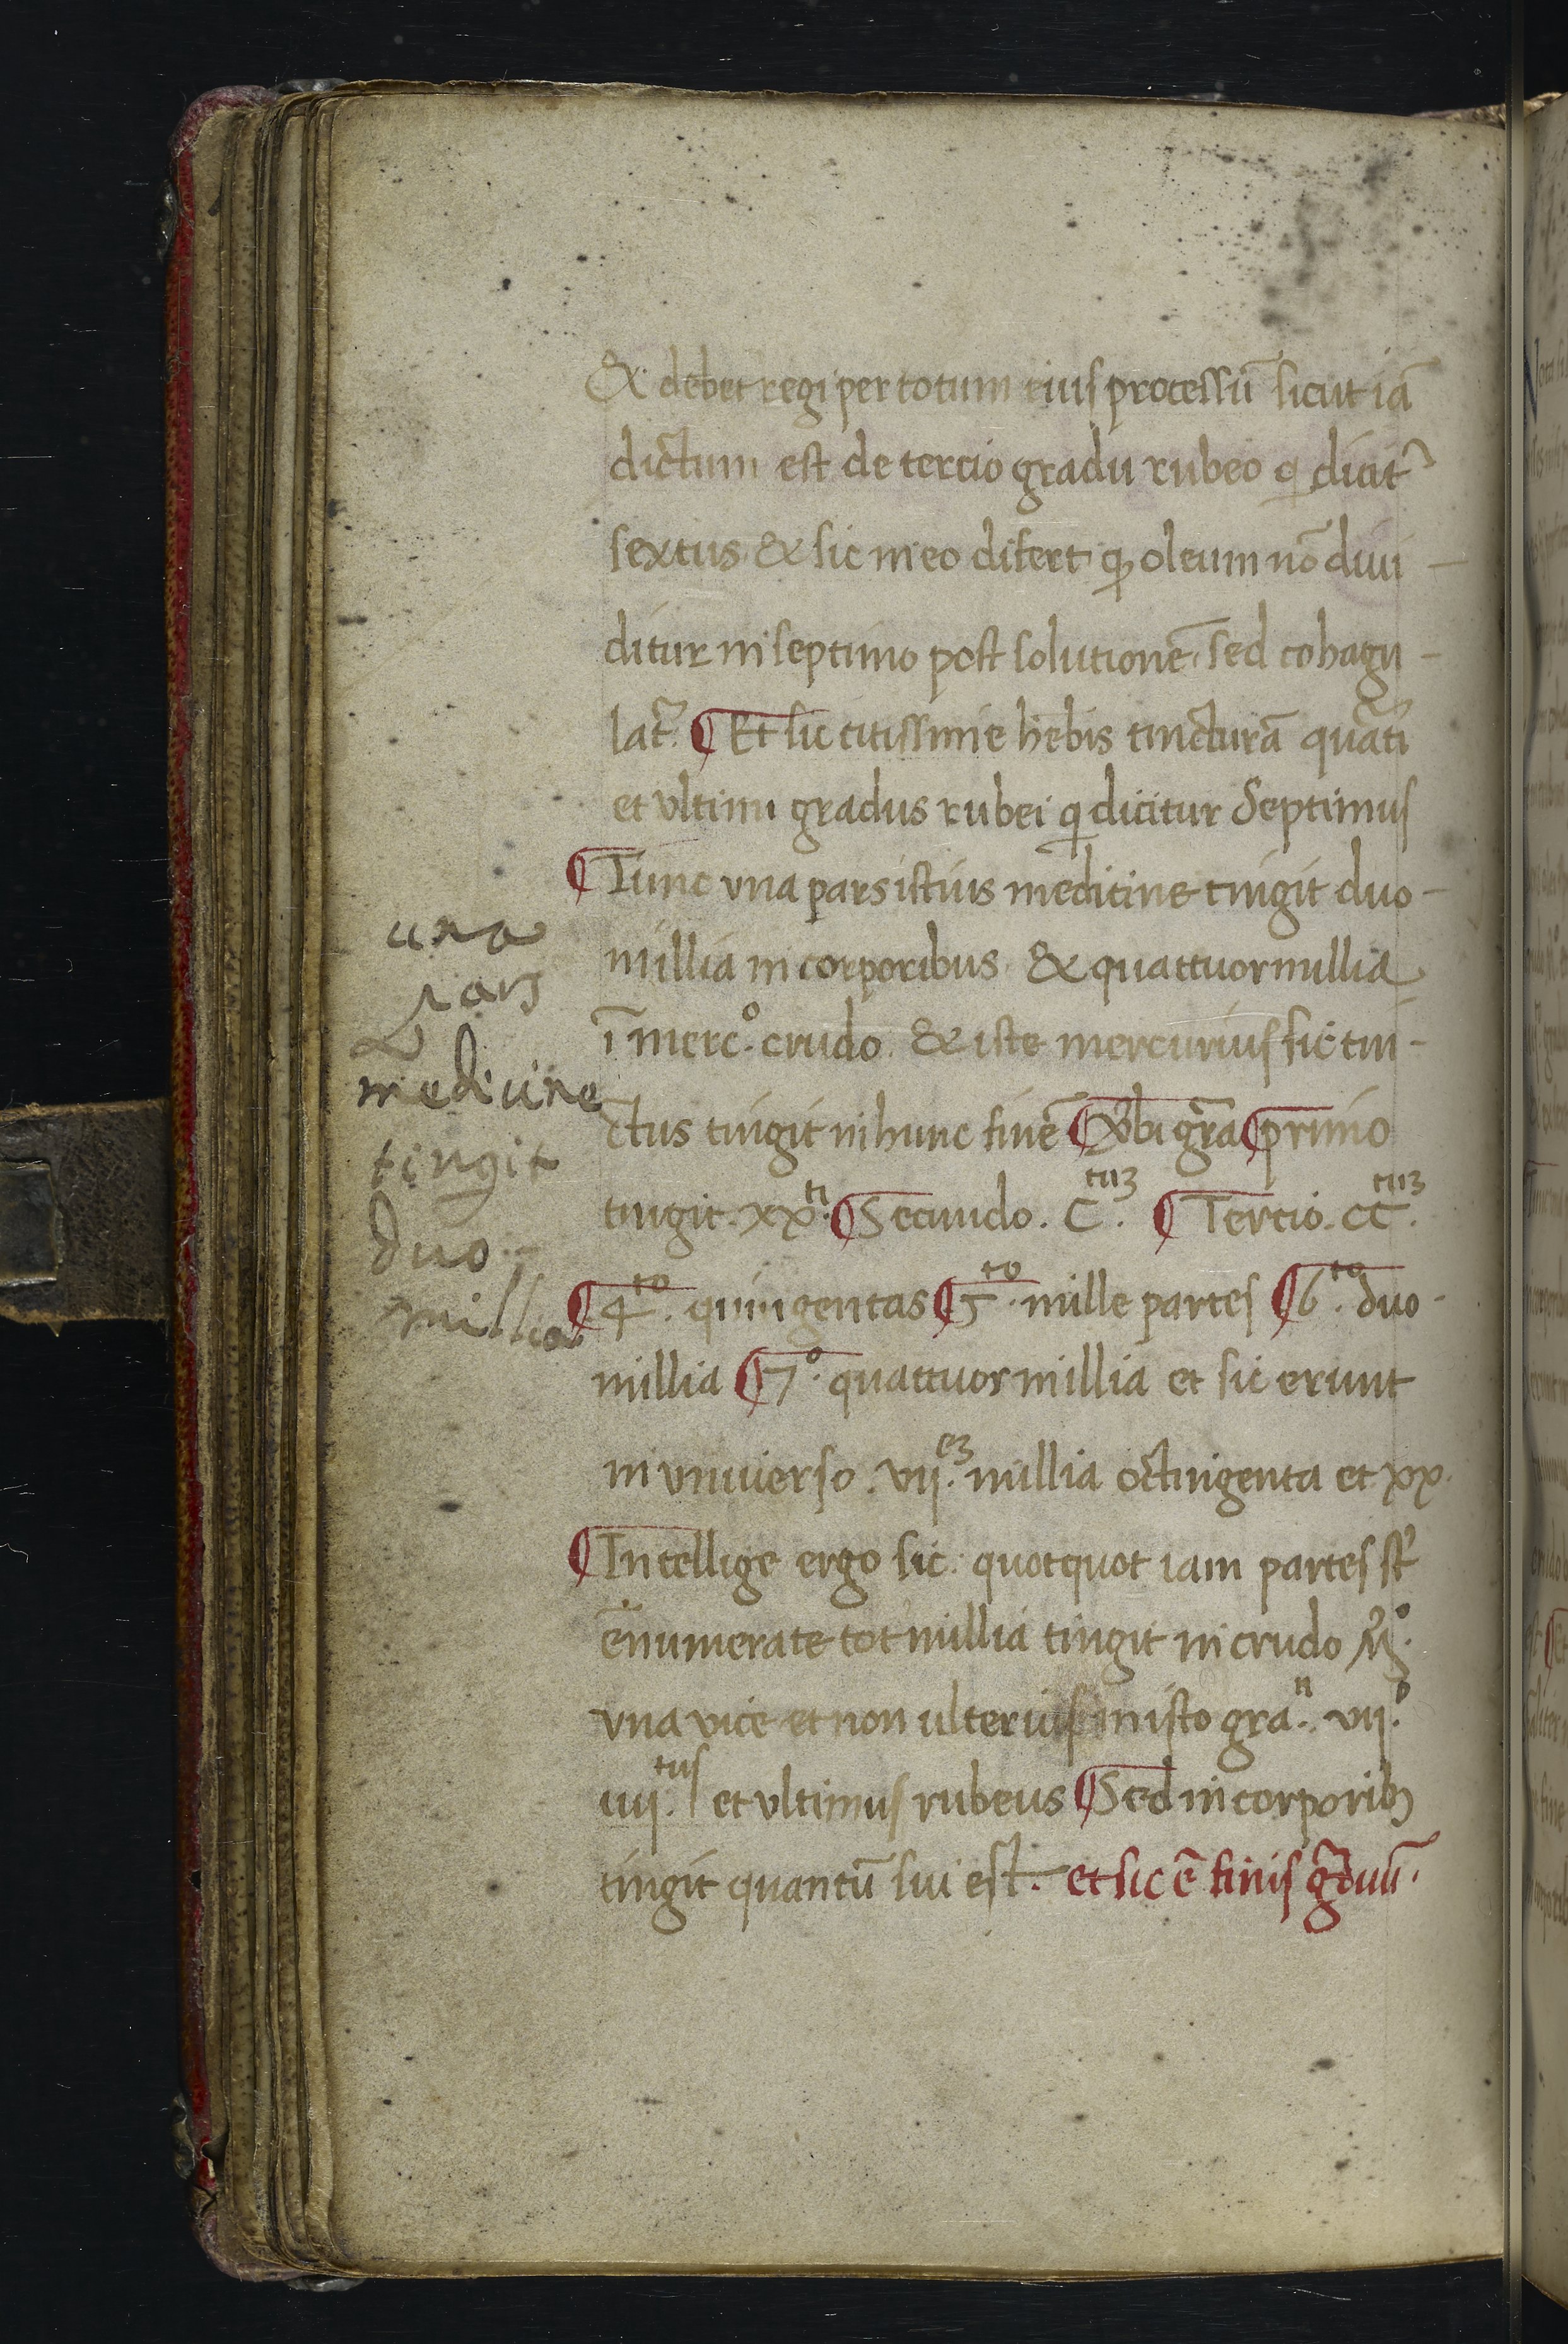 & debet regi per totum eius processū sicut iā
dictum est de tercio gradu rubeo q dicit᷑
sextus & sic in eo difert q oleum nō diui-
ditur in septimo post solutionē sed cohagu-
lat᷑. ¶ Et sic citissime hēbis tincturā quāti
et vltimi gradus rubei q dicitur Septimus
¶ Tunc vna pars istius medicine tingit duo-
millia in corporibus & quattuor millia
ī merc.º crudo. & iste mercurius sic tin-
ctus tingit in hunc finē ¶ Vˀbi gr̄a ¶ primo
tingit. xx.ti ¶ Secundo. C.tuꝫ ¶ Tercio. CC.tuꝫ
¶ 4.to quingentas ¶ 5.to mille partes ¶ 6.to duo-
millia ¶ 7.º quattuor millia et sic erunt
in vniuerso. vij.eꝫ millia octingenta et xx.
¶ Intellige ergo sic: quotquot iam partes st̄
enumerate tot millia tingit in crudo ☿.º
vna vice et non ulterius in isto gra.u vij.º
iiij.tus et vltimus rubeus ¶ Sed in corporibꝫ
tingit quantū sui est. et sic ē finis gr̄duū.
una
pars
medicine
tingit
duo-
millia